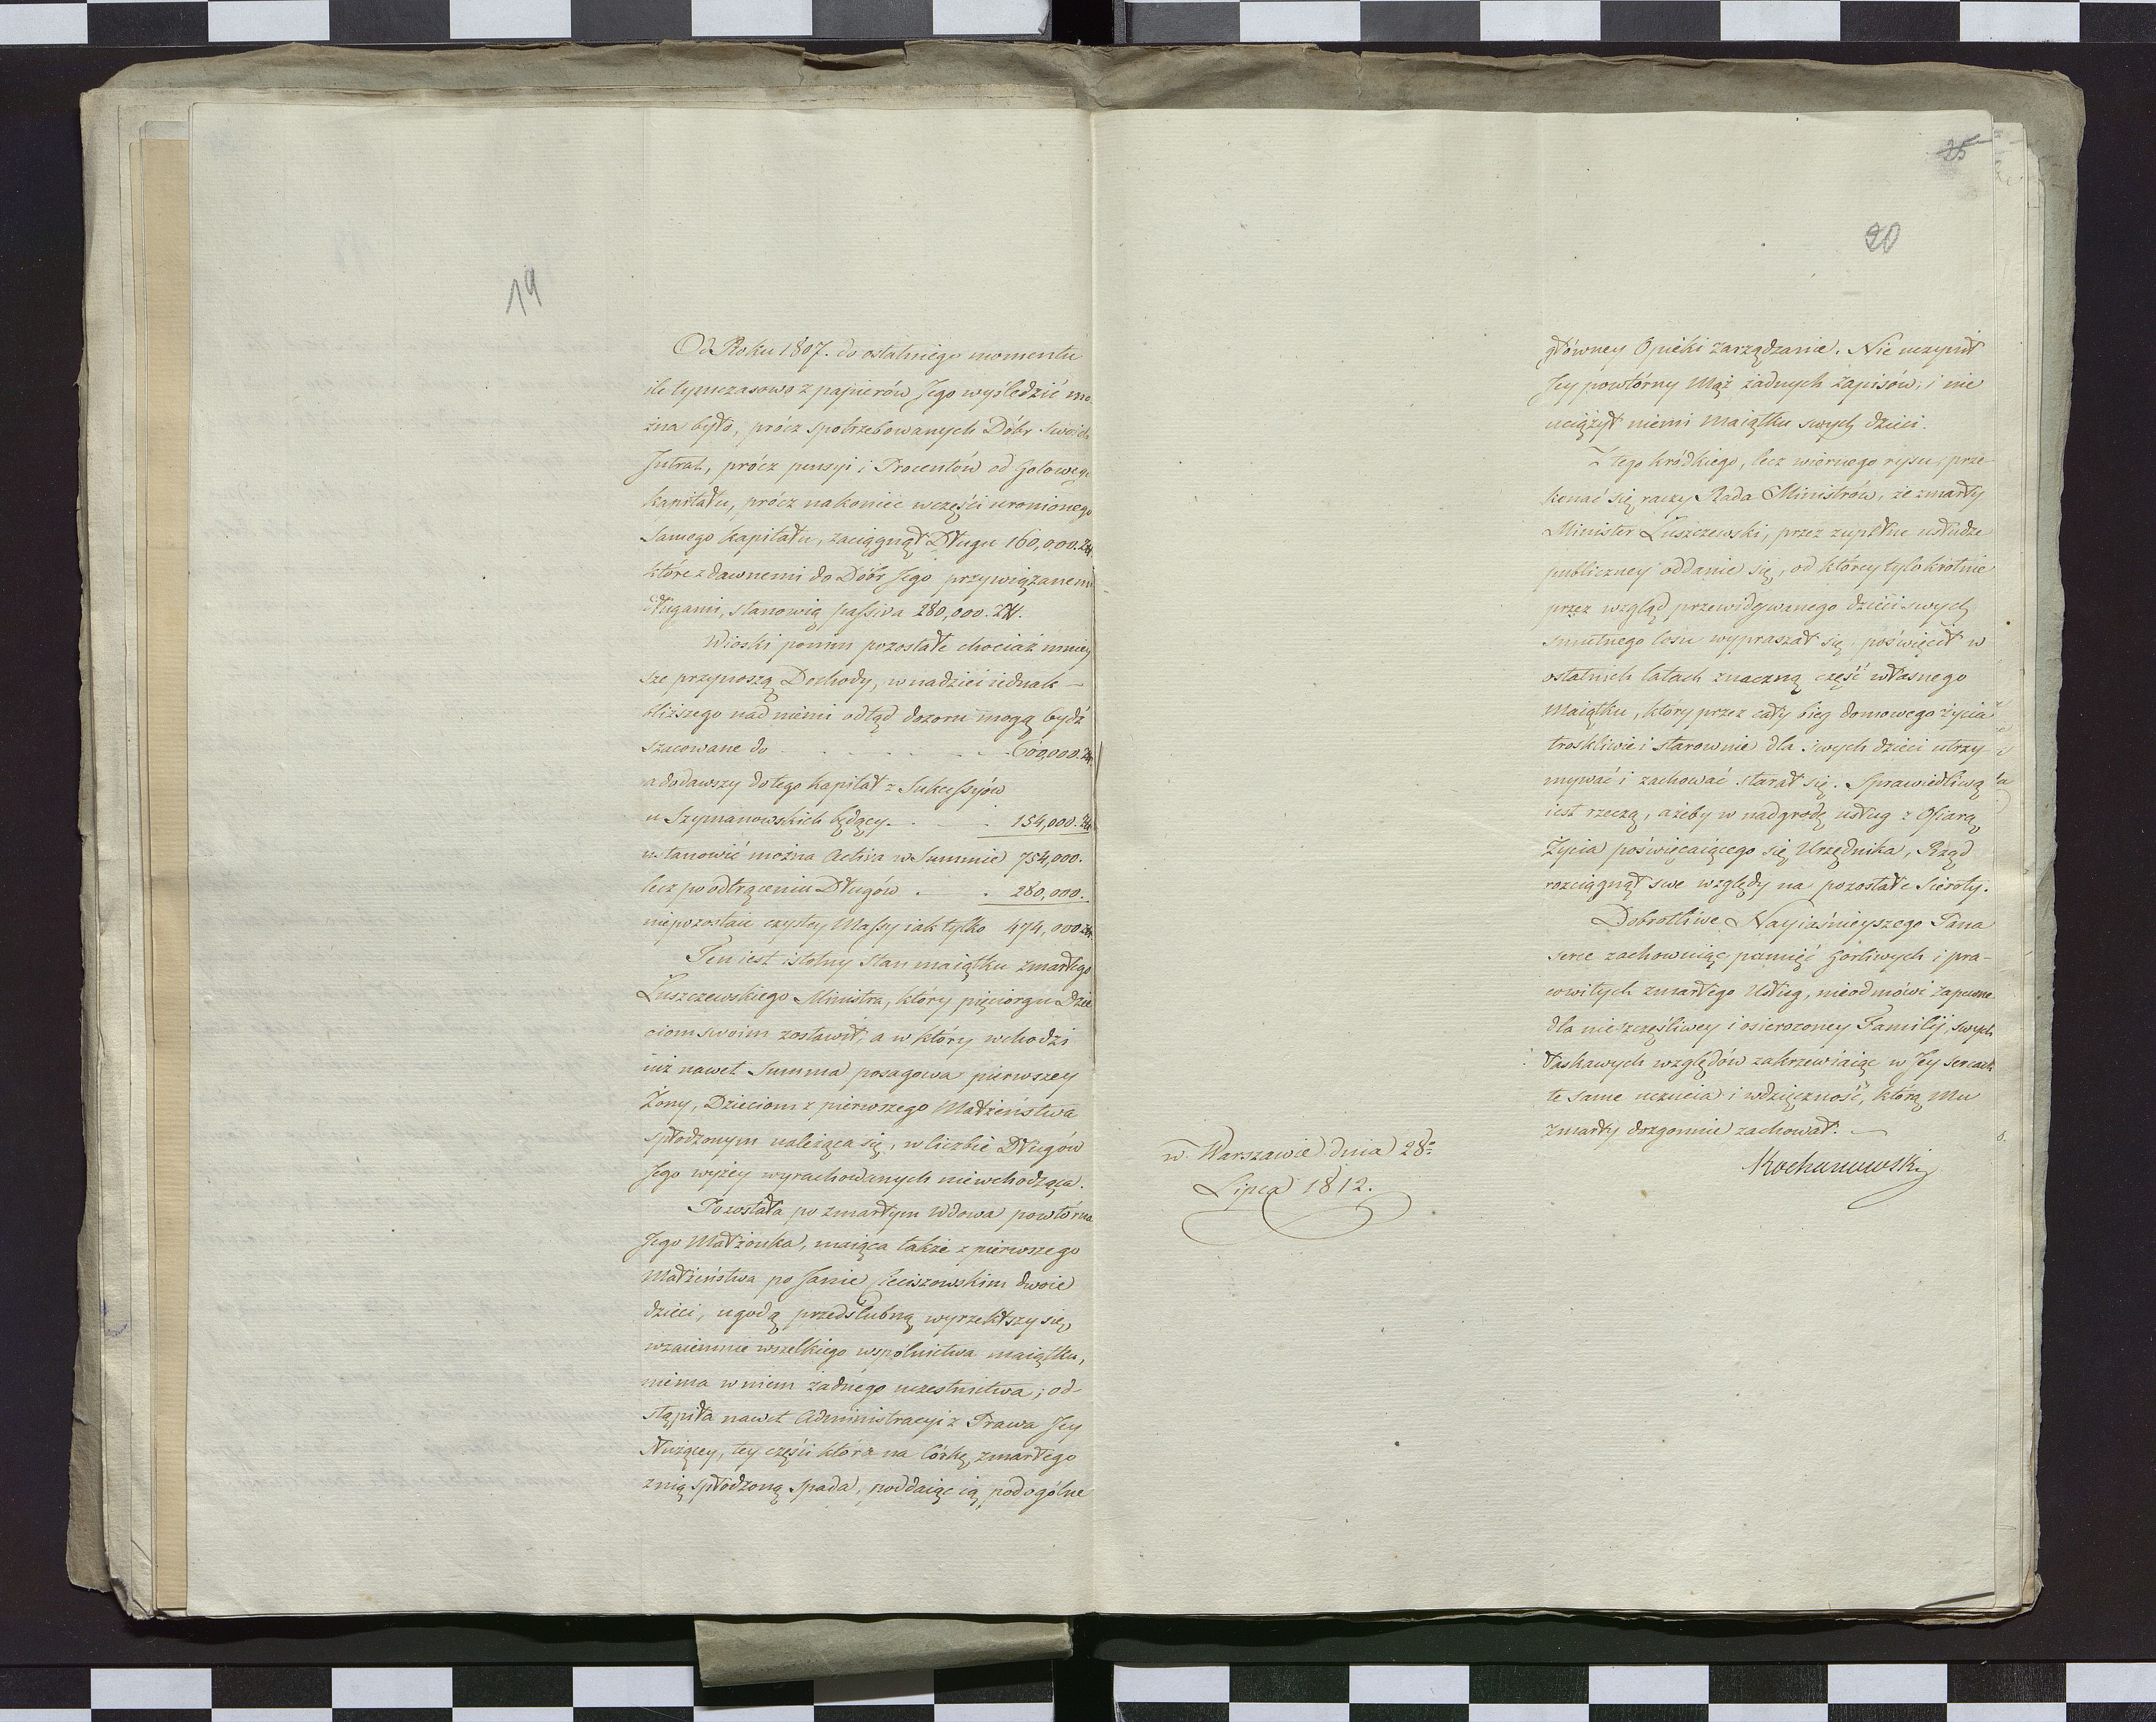 19
Od Roku 1807. do ostatniego momentu
ile tymczasowo z papierów Jego wyśledzić mo
żna było, prócz spotrzebowanych Dóbr swoich
Intrat, prócz pensyi i Procentów od Gotowego
kapitału, prócz nakoniec w części uronionego
samego kapitału, zaciągnął Długu 160,000. Zł.
które z dawnemi do Dóbr Jego przywiązanemi
długami, stanowią passiva 280,000. Zł.
Wioski ponim pozostałe chociaż mniey
sze przynoszą Dochody, w nadziei iednak —
bliższego nad niemi odtąd dozoru mogą bydź
szacowane do . . . . . . . 600,000. Zł.
a dodawszy do tego kapitał z Sukcessyów
u Szymanowskich będący. . . . 154,000. Zł.
ustanowić można Activa w Summie 754,000.
lecz po odtrąceniu Długów . . . 280,000.
niepozostaie czystey Massy iak tylko 474,000 Zł.
Ten iest istotny stan maiątku zmarłego
Łuszczewskiego Ministra, który pięciorgu Dzie
ciom swoim zostawił; a w który wchodzi
iuż nawet Summa posagowa pierwszey
Żony, Dzieciom z pierwszego Małżeństwa
spłodzonym należąca się, w liczbie Długów
Jego wyżey wyrachowanych niewchodząca.
Pozostała po zmarłym Wdowa powtórna
Jego Małżonka, maiąca także z pierwszego
Małżeństwa po Janie Cieciszowskim dwoie
dzieci, ugodą przedślubną wyrzekłszy się
wzaiemnie wszelkiego wspólnictwa maiątku,
niema w niem żadnego uczestnictwa; od-
stąpiła nawet Administracyi z Prawa Jey
służącey, tey części która na Córkę zmarłego
z nią spłodzoną spada, poddaiąc ią pod ogólne
25
20
główney Opieki zarządzanie. Nie uczynił
Jey powtórny Mąż żadnych zapisów, i nie
uciążył niemi Maiątku swych dzieci.
Z tego kródkiego, lecz wiernego rysu, prze-
konać się raczy Rada Ministrów, że zmarły
Minister Łuszczewski, przez zupełne usłudze
publiczney oddanie się, od którey tylokrotnie
przez wzgląd przewidywanego dzieci swych
smutnego losu wypraszał się, poświęcił w
ostatnich latach znaczną część własnego
Maiątku, który przez cały bieg domowego życia
troskliwie i starownie dla swych dzieci utrzy-
mywać i zachować starał się. Sprawiedliwą
iest rzeczą, ażeby w nadgrodę usług z Ofiarą
Życia poświęcaiącego się Urzędnika, Rząd
rozciągnął swe względy na pozostałe Sieroty.
Dobrotliwe Nayiaśnieyszego Pana
serce zachowuiąc pamięć Gorliwych i pra-
cowitych zmarłego Usług, nieodmówi zapewne
dla nieszczęśliwey i osieroconey Familij, swych
łaskawych względów zakrzewiaiąc w Jey sercach
te same uczucia i wdzięczność, którą Mu
zmarły dozgonnie zachował. —
Kochanowski
w Warszawie dnia 28o
Lipca 1812.